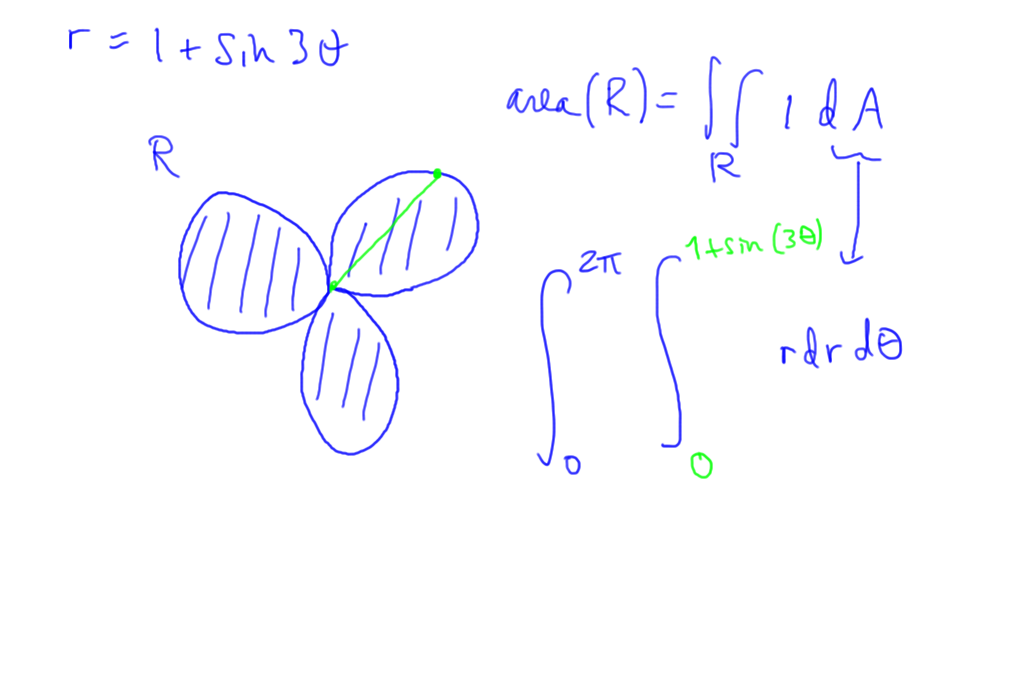 r = 1 + sin 3θ
area(R) = ∬ 1 dA
R
R
∫ 2π 0 ∫ 1+sin(3θ) 0 r dr dθ